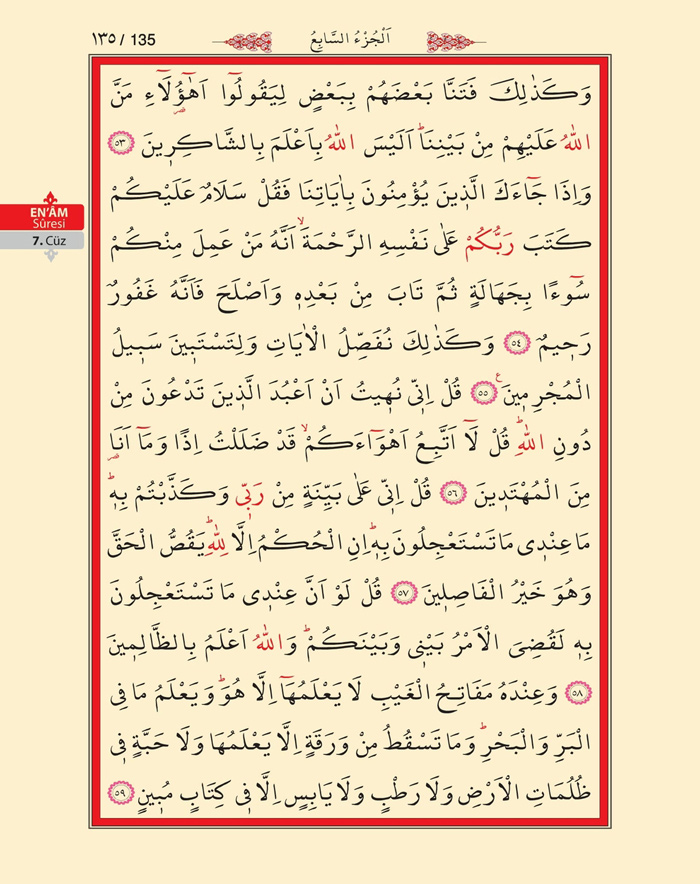 ١٣٥ / 135
اَلْجُزْءُ السَّابِعُ
EN'ÂM
Sûresi
7. Cüz
وَكَذٰلِكَ فَتَنَّا بَعْضَهُمْ بِبَعْضٍ لِيَقُولُٓوا اَهٰٓؤُ۬لَٓاءِ مَنَّ
اللّٰهُ عَلَيْهِمْ مِنْ بَيْنِنَاۜ اَلَيْسَ اللّٰهُ بِاَعْلَمَ بِالشَّاكِر۪ينَ ﴿٥٣﴾
وَاِذَا جَٓاءَكَ الَّذ۪ينَ يُؤْمِنُونَ بِاٰيَاتِنَا فَقُلْ سَلَامٌ عَلَيْكُمْ
كَتَبَ رَبُّكُمْ عَلٰى نَفْسِهِ الرَّحْمَةَۙ اَنَّهُ مَنْ عَمِلَ مِنْكُمْ
سُٓوءًا بِجَهَالَةٍ ثُمَّ تَابَ مِنْ بَعْدِه۪ وَاَصْلَحَ فَاَنَّهُ غَفُورٌ
رَح۪يمٌ ﴿٥٤﴾ وَكَذٰلِكَ نُفَصِّلُ الْاٰيَاتِ وَلِتَسْتَب۪ينَ سَب۪يلُ
الْمُجْرِم۪ينَ۟ ﴿٥٥﴾ قُلْ اِنّ۪ي نُه۪يتُ اَنْ اَعْبُدَ الَّذ۪ينَ تَدْعُونَ مِنْ
دُونِ اللّٰهِۜ قُلْ لَٓا اَتَّبِعُ اَهْوَٓاءَكُمْۙ قَدْ ضَلَلْتُ اِذًا وَمَٓا اَنَا۬
مِنَ الْمُهْتَد۪ينَ ﴿٥٦﴾ قُلْ اِنّ۪ي عَلٰى بَيِّنَةٍ مِنْ رَبّ۪ي وَكَذَّبْتُمْ بِه۪ۜ
مَا عِنْد۪ي مَا تَسْتَعْجِلُونَ بِه۪ۜ اِنِ الْحُكْمُ اِلَّا لِلّٰهِۜ يَقُصُّ الْحَقَّ
وَهُوَ خَيْرُ الْفَاصِل۪ينَ ﴿٥٧﴾ قُلْ لَوْ اَنَّ عِنْد۪ي مَا تَسْتَعْجِلُونَ
بِه۪ لَقُضِيَ الْاَمْرُ بَيْن۪ي وَبَيْنَكُمْۜ وَاللّٰهُ اَعْلَمُ بِالظَّالِم۪ينَ
﴿٥٨﴾ وَعِنْدَهُ مَفَاتِحُ الْغَيْبِ لَا يَعْلَمُهَٓا اِلَّا هُوَۜ وَيَعْلَمُ مَا فِي
الْبَرِّ وَالْبَحْرِۜ وَمَا تَسْقُطُ مِنْ وَرَقَةٍ اِلَّا يَعْلَمُهَا وَلَا حَبَّةٍ ف۪ي
ظُلُمَاتِ الْاَرْضِ وَلَا رَطْبٍ وَلَا يَابِسٍ اِلَّا ف۪ي كِتَابٍ مُب۪ينٍ ﴿٥٩﴾